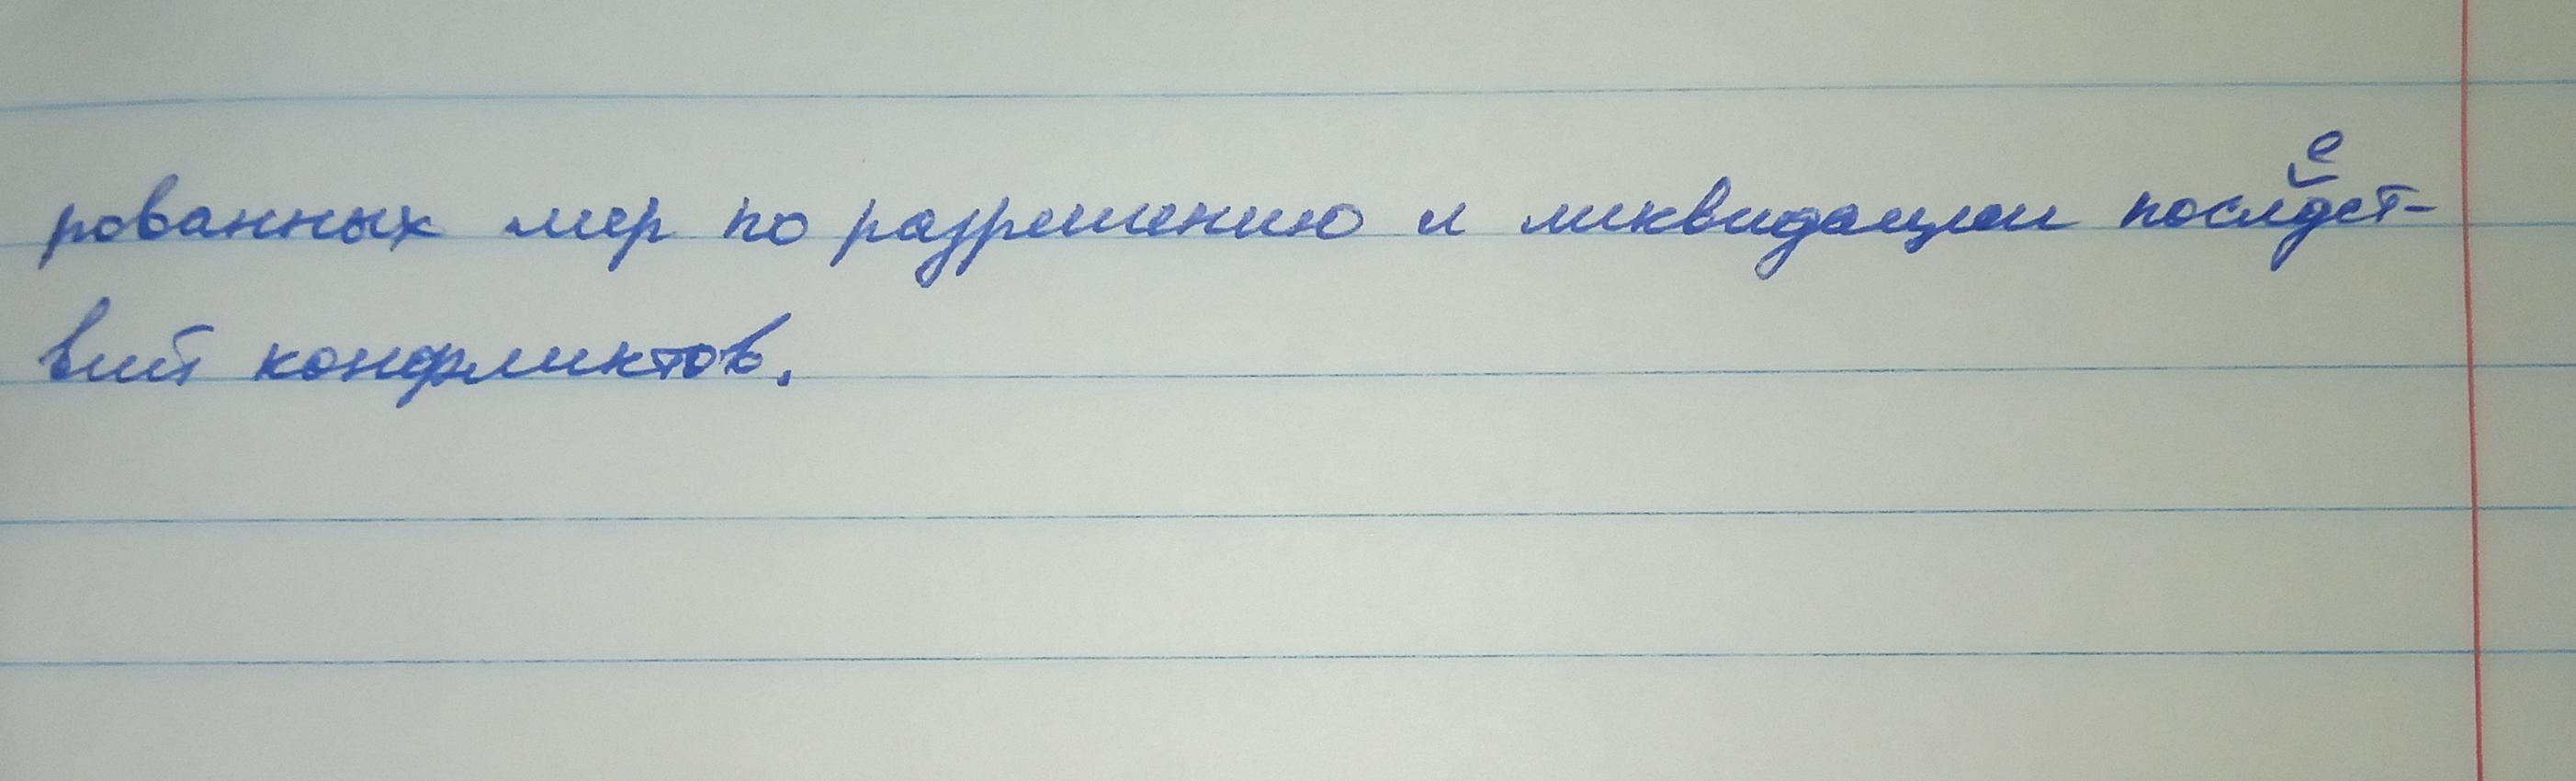 рованных мер по разрешению и ликвидации последст-
вий конфликтов.